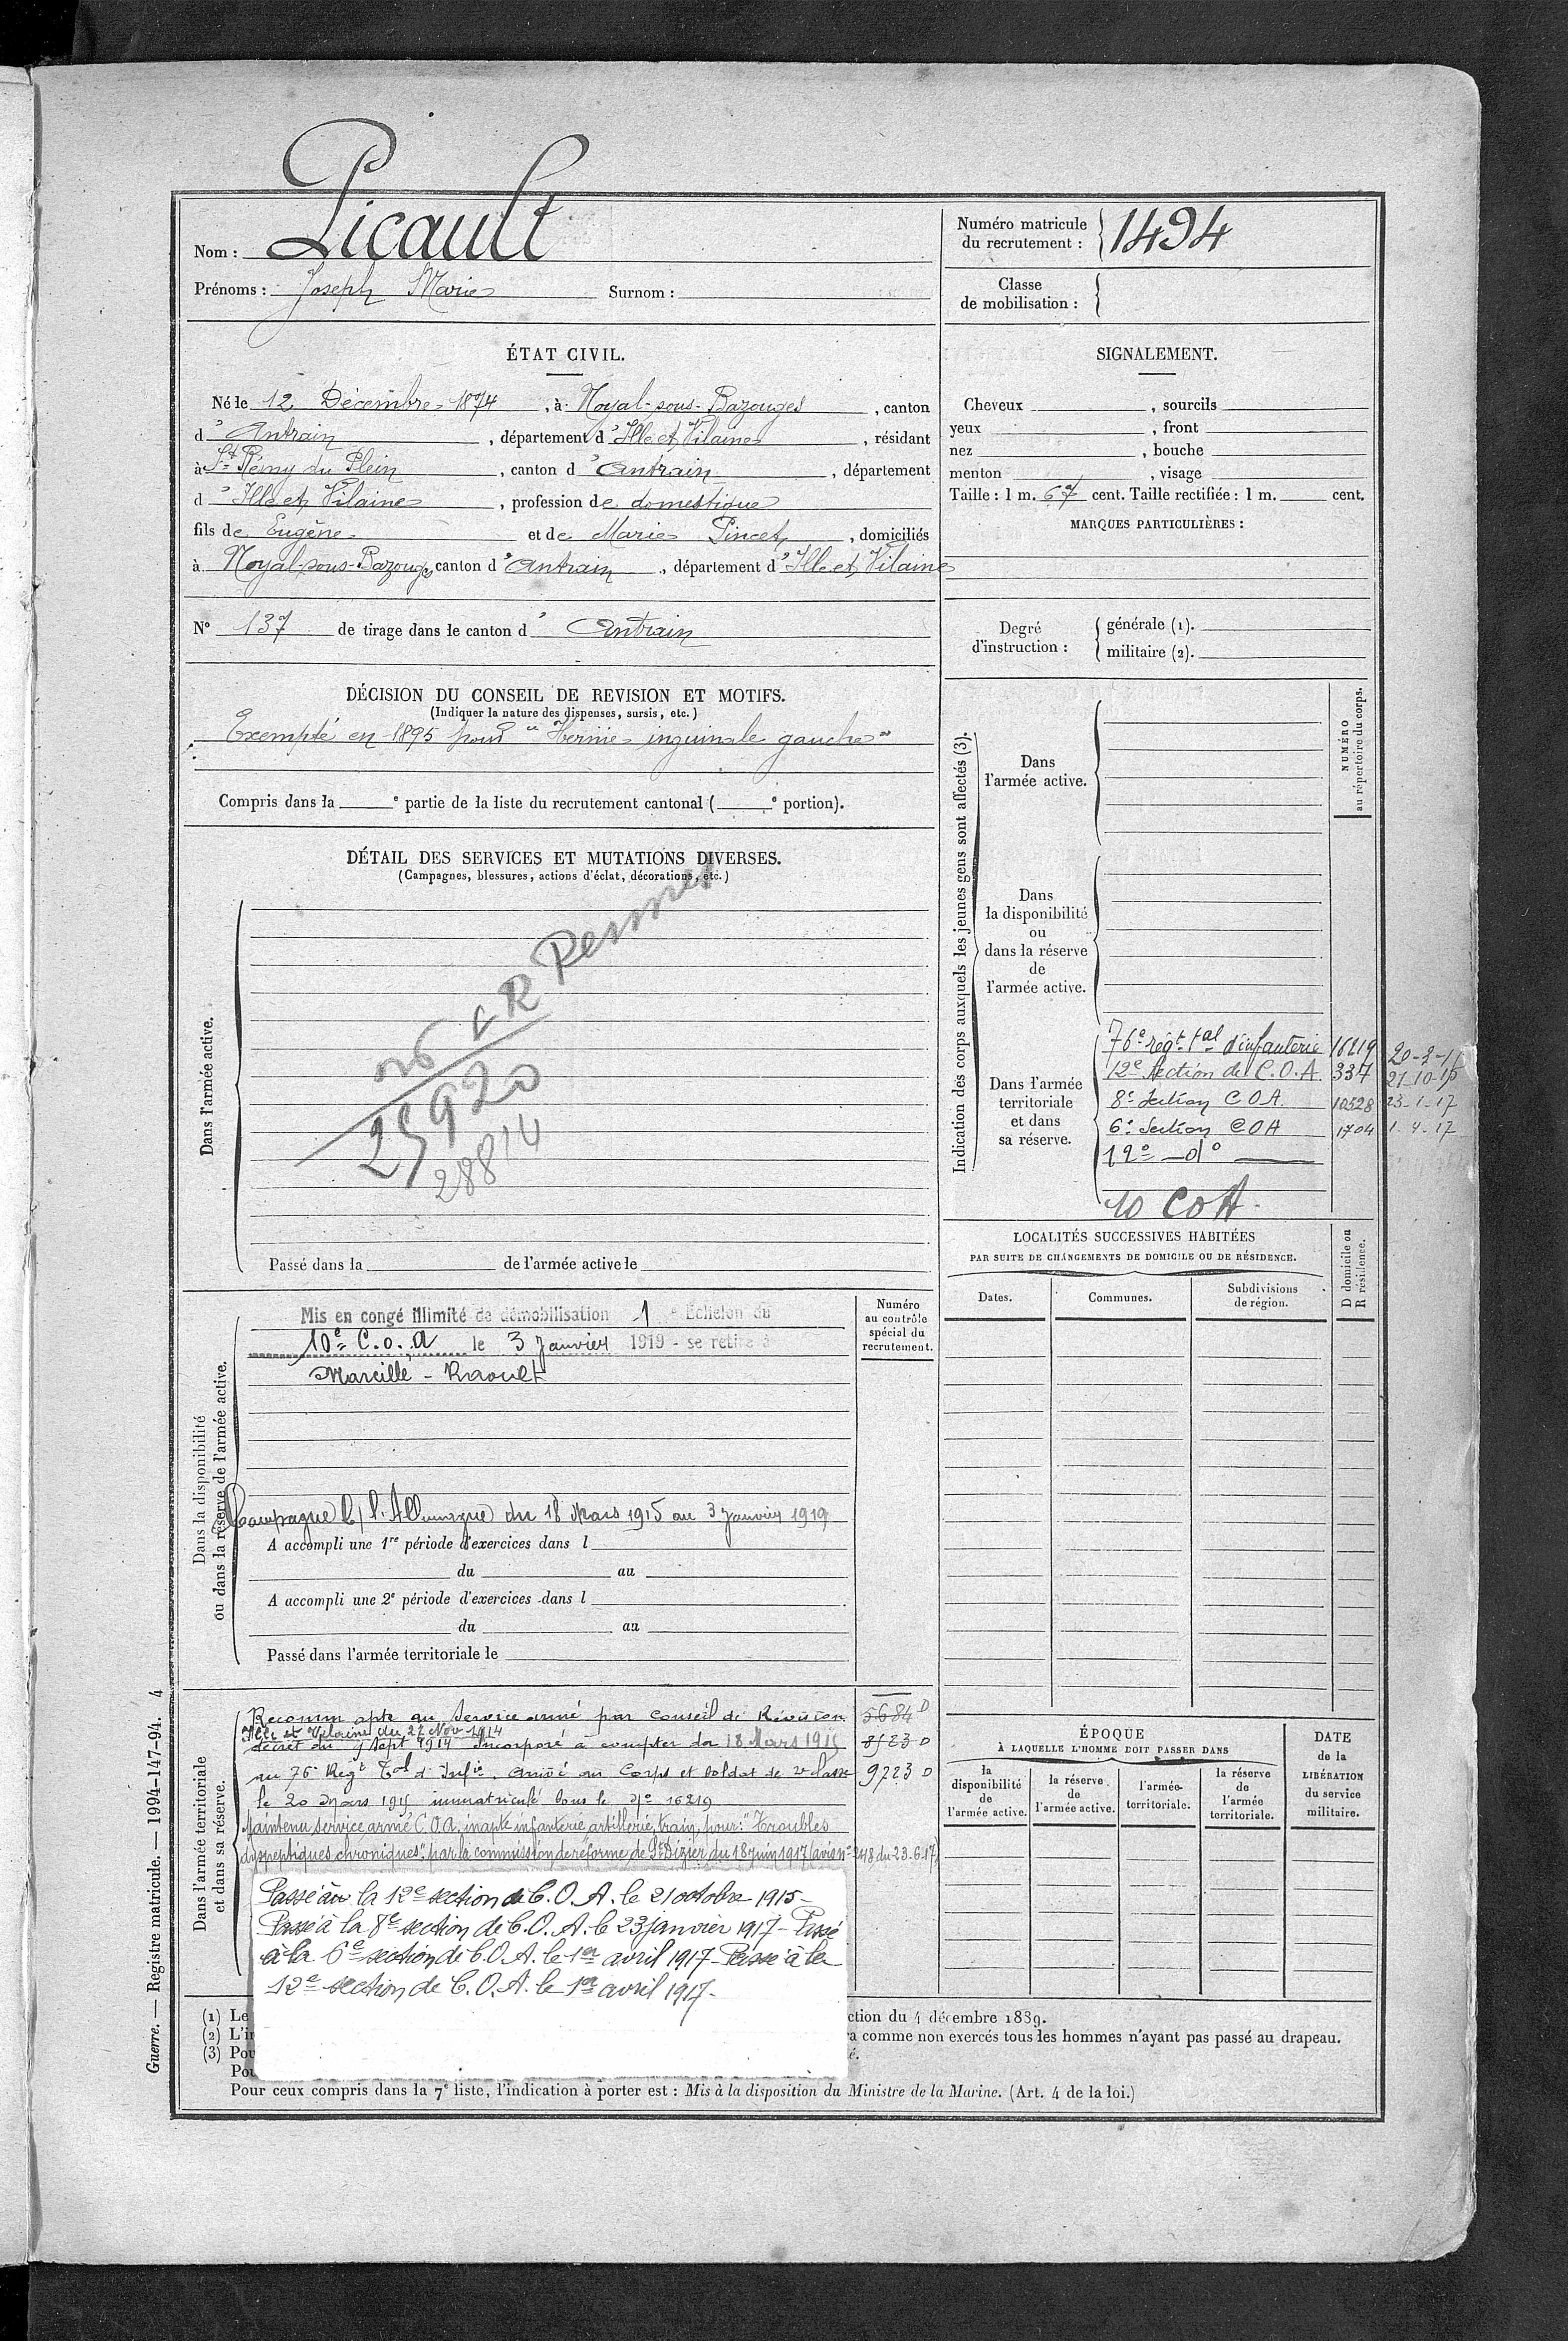 Nom : Picault
Prénoms : Joseph Marie Surnom :
Numéro matricule du recrutement : 1494
Classe de mobilisation :
ÉTAT CIVIL.
Né le 12 Décembre 1874, à Noyal-sous-Bazouges, canton
d'Antrain, département d'Ille et Vilaine, résidant
à St Rémy du Plein, canton d'Antrain, département
d'Ille et Vilaine, profession de domestique
fils de Eugène et de Marie Pincet, domiciliés
à Noyal-sous-Bazouges, canton d'Antrain, département d'Ille et Vilaine
N° 137 de tirage dans le canton d'Antrain
SIGNALEMENT.
Cheveux , sourcils
yeux , front
nez , bouche
menton , visage
Taille : 1 m. 67 cent. Taille rectifiée : 1 m. cent.
MARQUES PARTICULIÈRES :
Degré d'instruction : générale (1).
militaire (2).
DÉCISION DU CONSEIL DE REVISION ET MOTIFS.
(Indiquer la nature des dispenses, sursis, etc.)
Exempté en 1895 pour "Hernie inguinale gauche"
Compris dans la e partie de la liste du recrutement cantonal ( e portion).
DÉTAIL DES SERVICES ET MUTATIONS DIVERSES.
(Campagnes, blessures, actions d'éclat, décorations, etc.)
Dans l'armée active.
CR Rennes
25920
28814
Passé dans la de l'armée active le
Indication des corps auxquels les jeunes gens sont affectés (3).
NUMÉRO
au répertoire du corps.
Dans
l'armée active.
Dans
la disponibilité
ou
dans la réserve
de
l'armée active.
Dans l'armée
territoriale
et dans
sa réserve.
76e régt tal d'infanterie 16219 20-3-15
12e Section de C.O.A. 337 21-10-15
8e Section C.O.A. 10528 23-1-17
6e Section C.O.A 1704 1-4-17
12e — do —
10 COA.
LOCALITÉS SUCCESSIVES HABITÉES
PAR SUITE DE CHANGEMENTS DE DOMICILE OU DE RÉSIDENCE.
Dates. Communes. Subdivisions de région.
D domicile ou
R résidence.
Dans la disponibilité
ou dans la réserve de l'armée active.
Numéro
au contrôle
spécial du
recrutement.
Mis en congé illimité de démobilisation 1 e Echelon du
10e C.O.A le 3 Janvier 1919 - se retire à
Marcillé - Raoult
Campagne c/ l'Allemagne du 18 Mars 1915 au 3 Janvier 1919
A accompli une 1re période d'exercices dans l
du au
A accompli une 2e période d'exercices dans l
du au
Passé dans l'armée territoriale le
Dans l'armée territoriale
et dans sa réserve.
Reconnu apte au Service armé par Conseil de Révision 5684 D
Ille et Vilaine du 27 Nov 1914
décret du 9 Sept 1914 Incorporé à compter du 18 Mars 1915 8523 D
au 76e Régt Tal d'Infie. arrivé au Corps et soldat de 2e classe 9723 D
le 20 Mars 1915 immatriculé sous le N° 16219
Maintenu service armé C.O.A. inapte infanterie, artillerie, train, pour: "Troubles
dyspeptiques chroniques" par la commission de réforme de St Dizier du 18 juin 1917 (avis n° 248 du 23-6-17)
Passé à la 12e section de C.O.A. le 21 octobre 1915 -
Passé à la 8e section de C.O.A. le 23 janvier 1917 - Passé
à la 6e section de C.O.A. le 1er avril 1917 - Passé à la
12e section de C.O.A. le 1er avril 1917 -
ÉPOQUE
À LAQUELLE L'HOMME DOIT PASSER DANS
la disponibilité de l'armée active.
la réserve de l'armée active.
l'armée territoriale.
la réserve de l'armée territoriale.
DATE
de la
LIBÉRATION
du service
militaire.
(1) Le ction du 4 décembre 1889.
(2) L'in ra comme non exercés tous les hommes n'ayant pas passé au drapeau.
(3) Pou é.
Pou
Pour ceux compris dans la 7e liste, l'indication à porter est : Mis à la disposition du Ministre de la Marine. (Art. 4 de la loi.)
Guerre. — Registre matricule. — 1994-147-94. 4